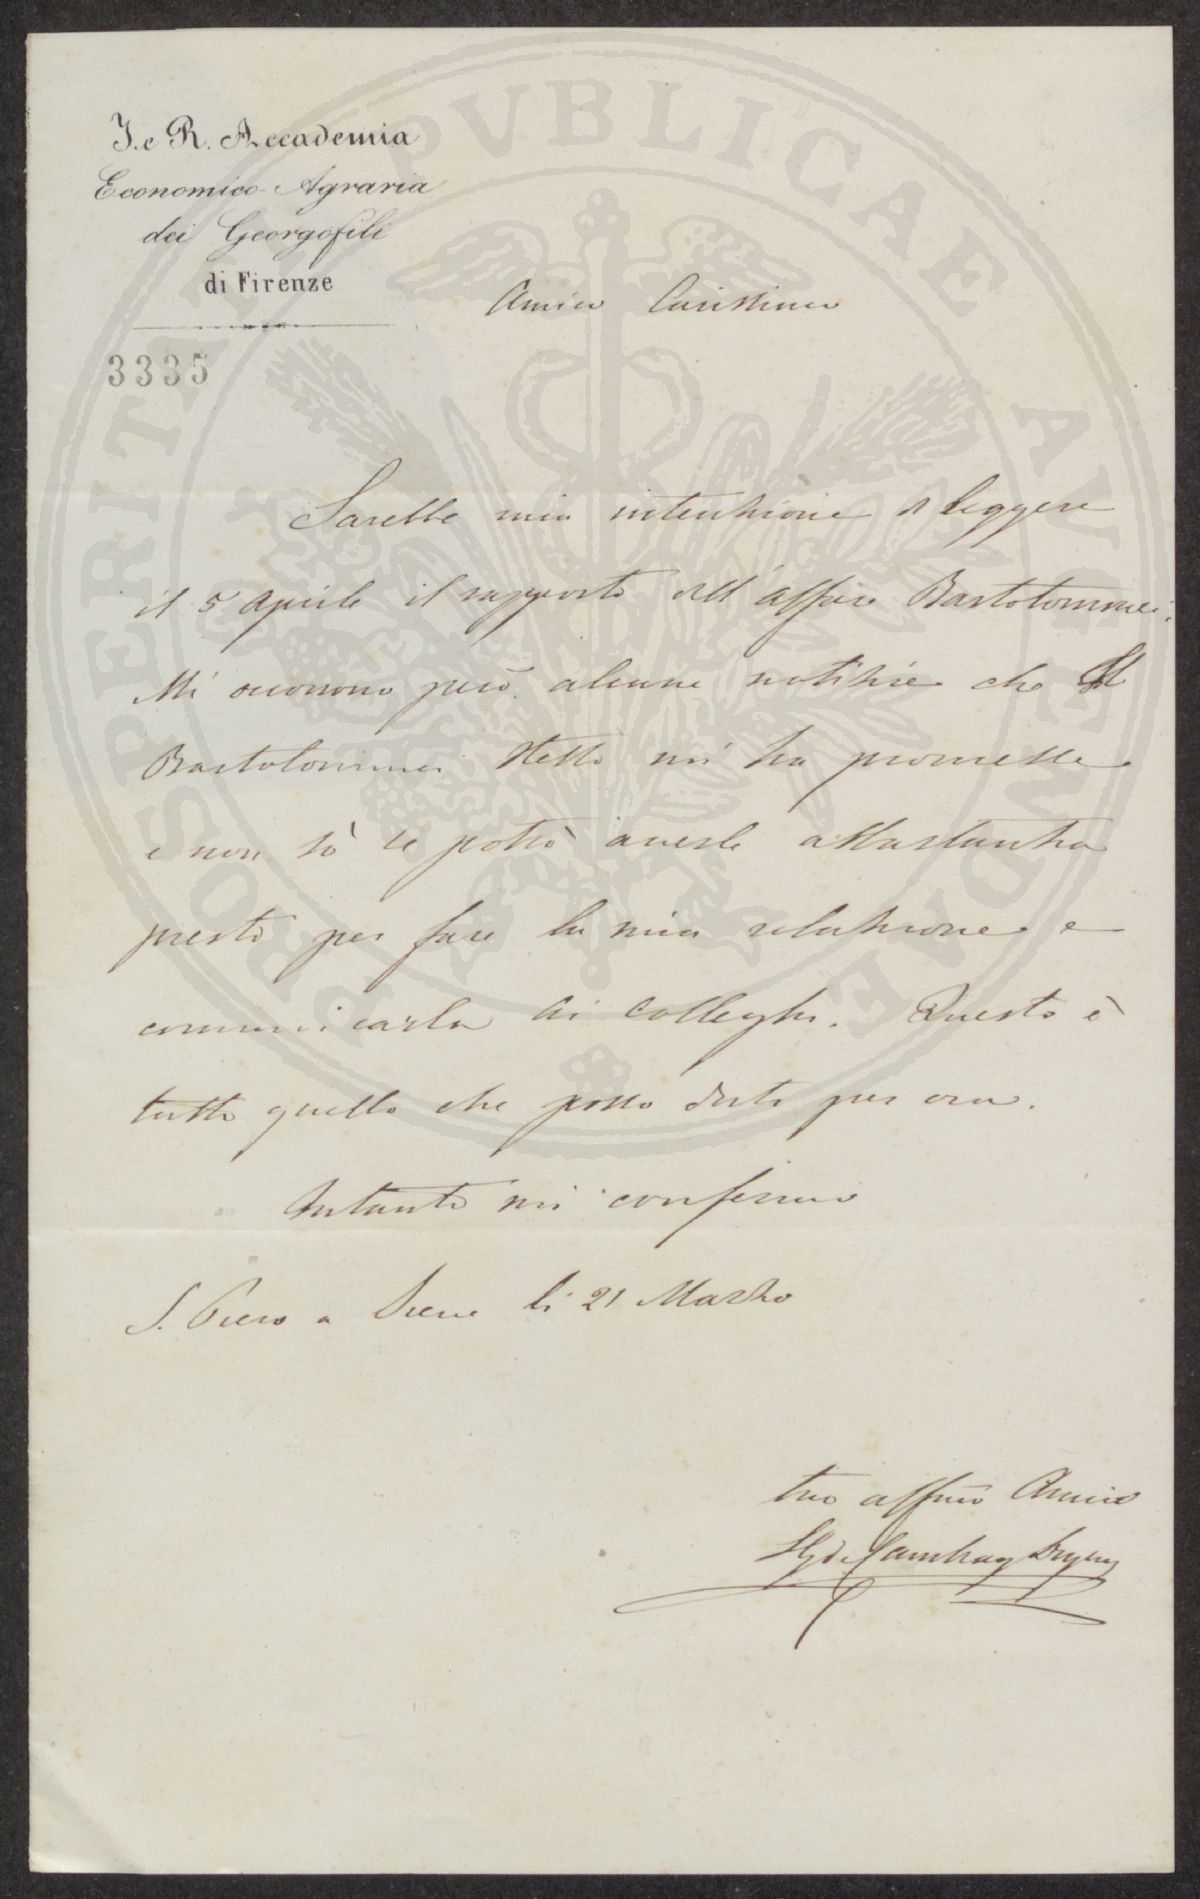 I. e R. Accademia
Economico-Agraria
dei Georgofili
di Firenze
3335
Amico Carissimo
Sarebbe mia intenzione di leggere
il 5 Aprile il rapporto sull'affare Bartolommei.
Mi occorrono però alcune notizie che il
Bartolommei stesso mi ha promesse
e non sò se potrò averle abbastanza
presto per fare la mia relazione e
comunicarla ai Colleghi. Questo è
tutto quello che posso dirti per ora.
Intanto mi confermo
S. Piero a Sieve li 21 Marzo
tuo affmo Amico
Cambray Digny
PROSPERITATI PVBLICAE AVGENDAE